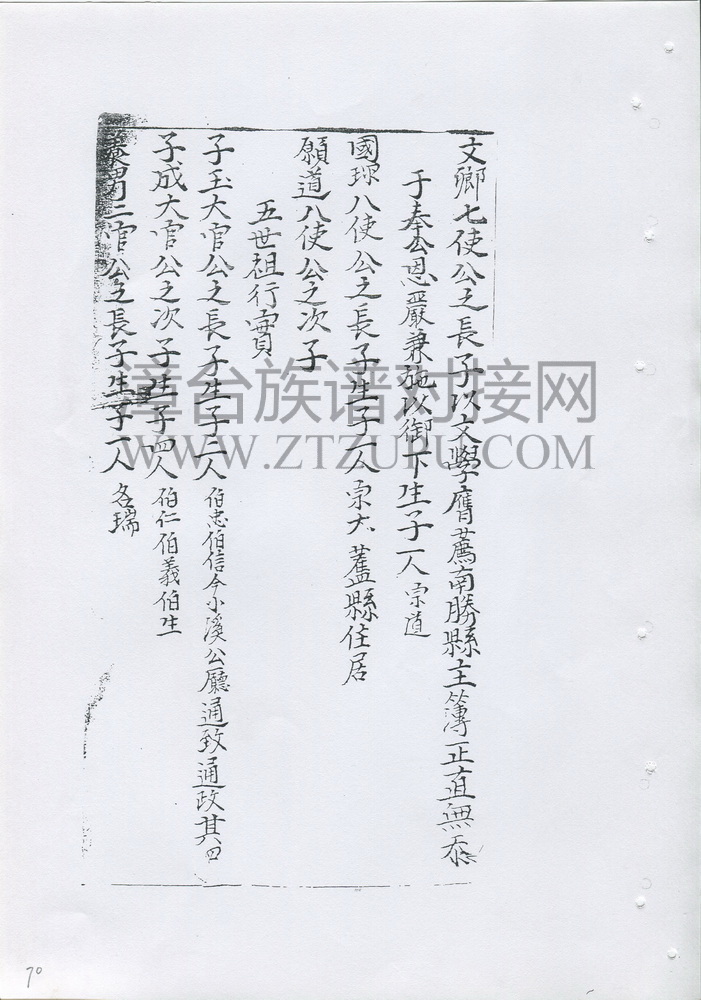 文鄉七使公之長子以文學膺薦南勝縣主簿正直無忝
于奉公恩嚴兼施以御下生子一人宗道
國珎八使公之長子生子一人宗大蓋縣住居
願道八使公之次子
五世祖行實
子玉大官公之長子生子二人伯忠伯信今小溪公廳通致通政其四
子成大官公之次子生子四人伯仁伯義伯生
二官公之長子生子一人名瑞
漳台族谱对接网
WWW.ZTZUPU.COM
70